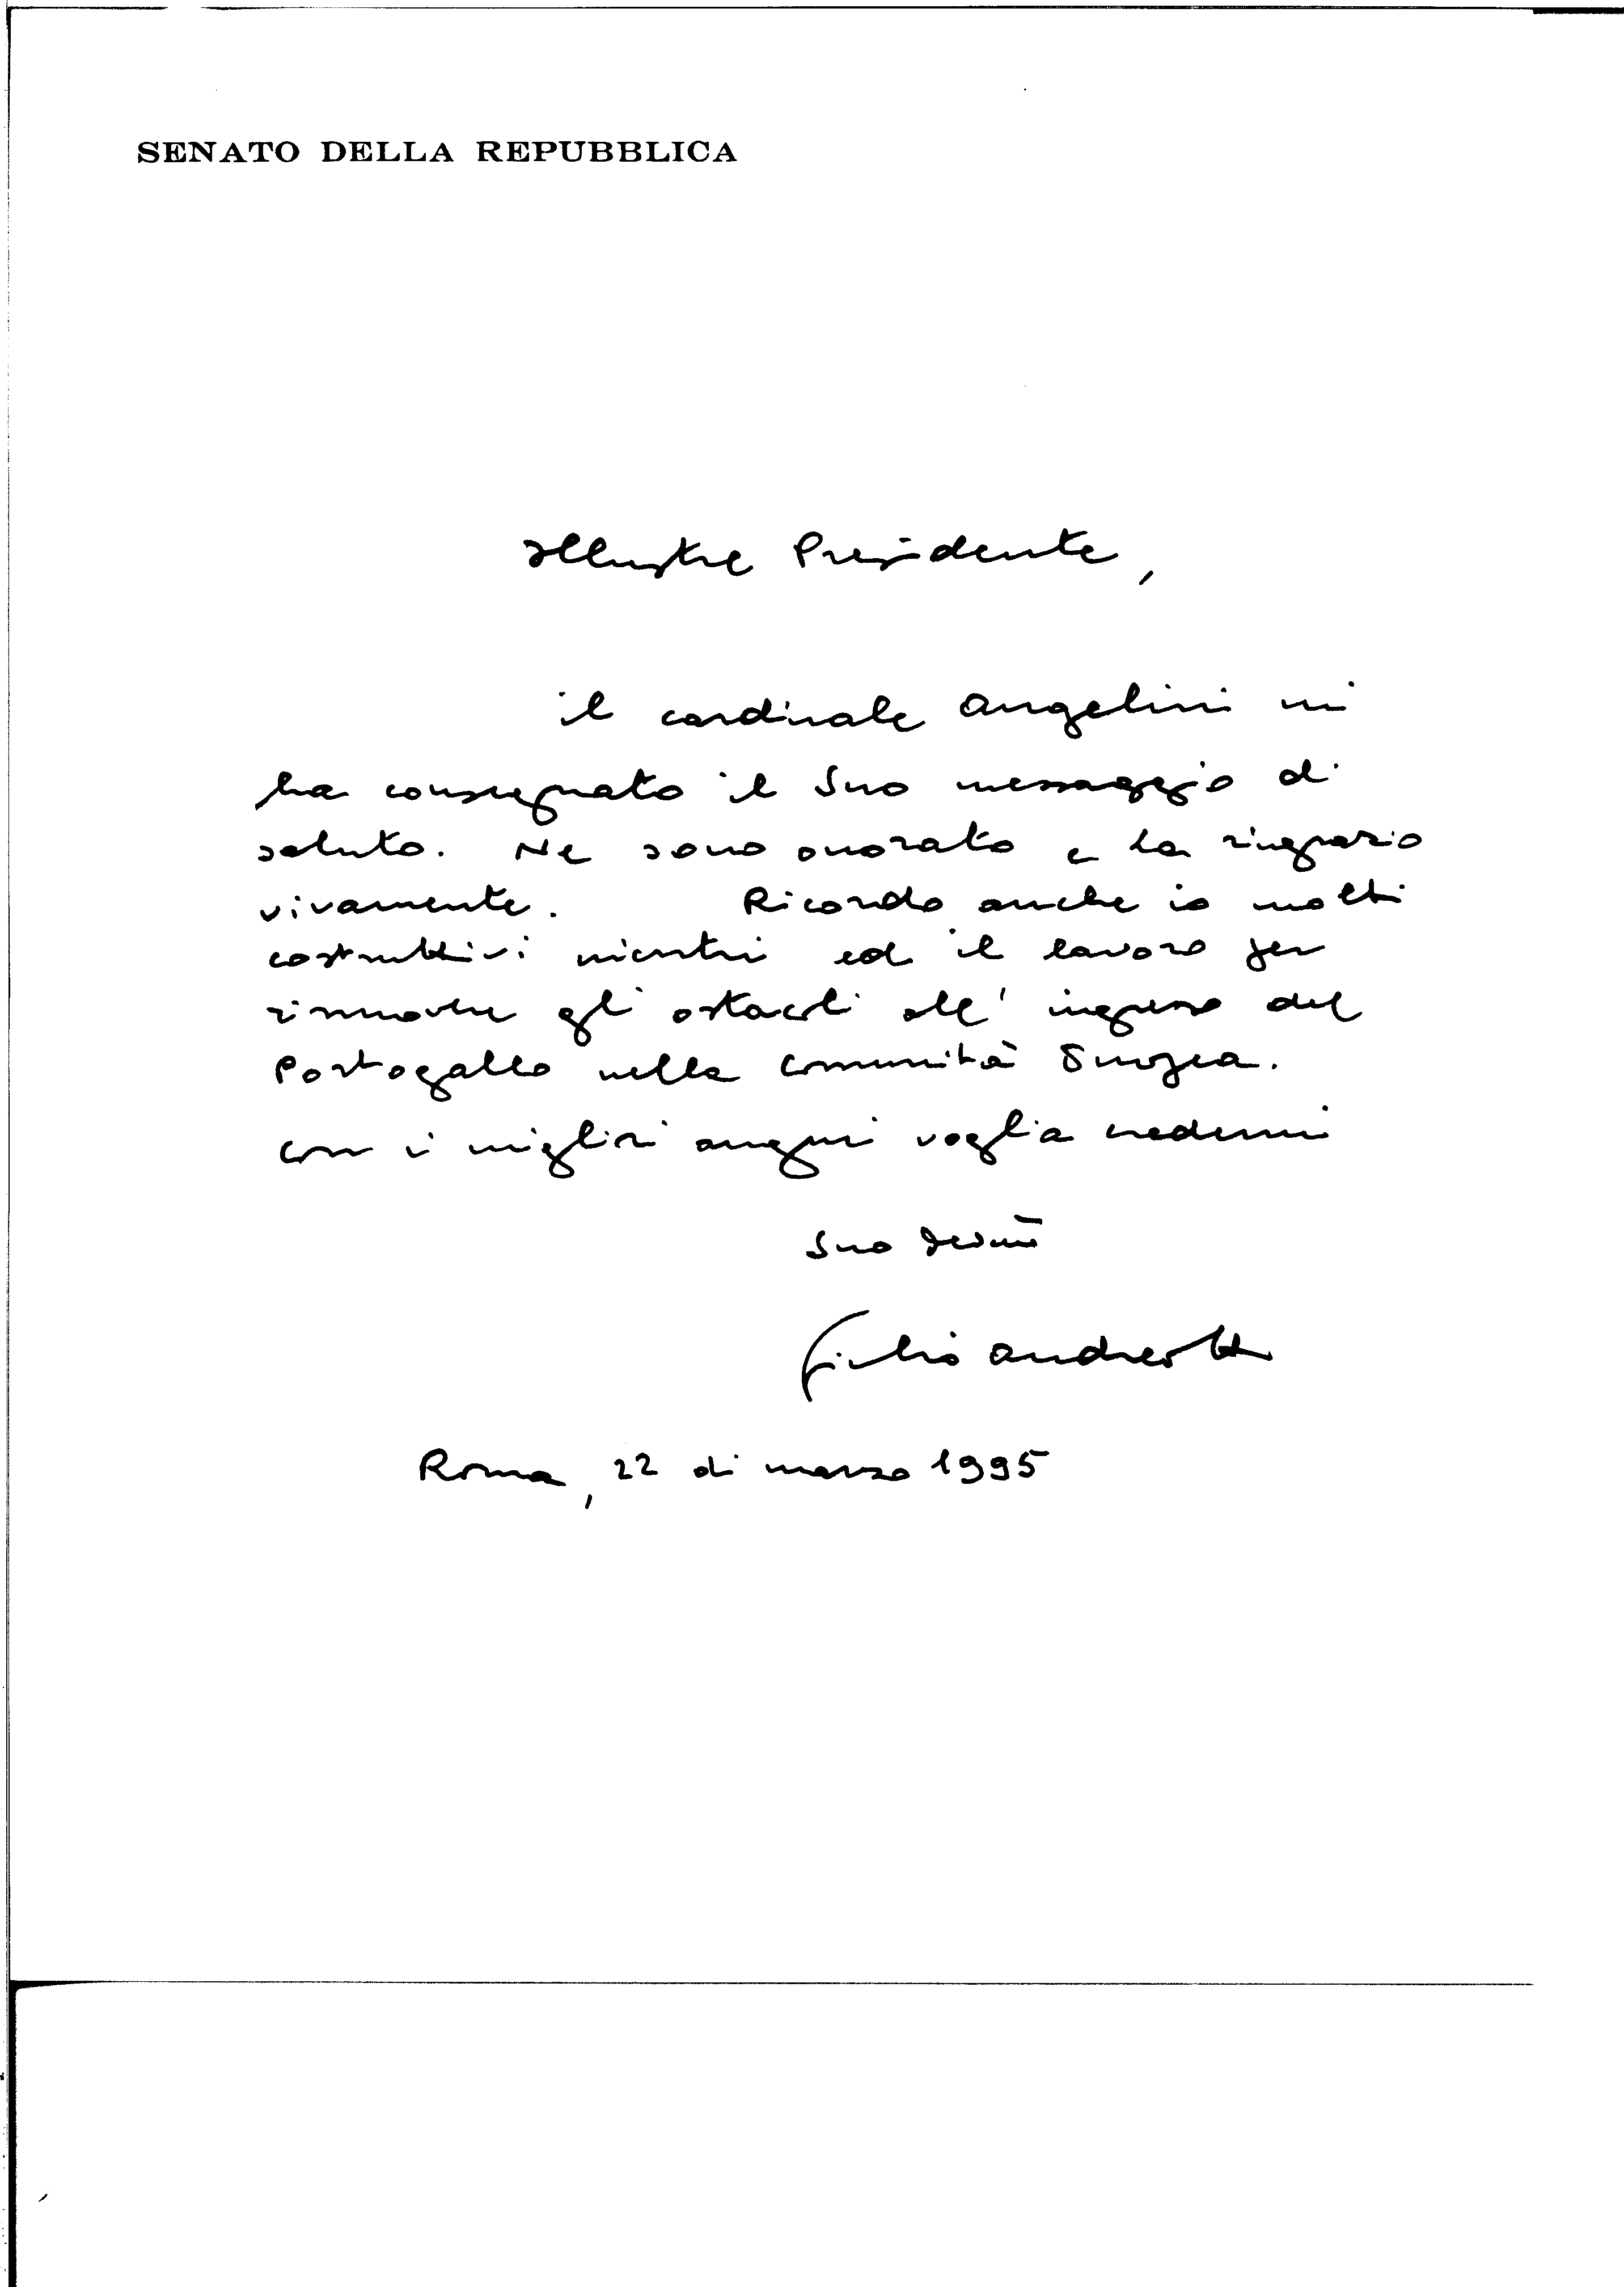 SENATO DELLA REPUBBLICA
Illustre Presidente,
il cardinale Angelini mi
ha consegnato il Suo messaggio di
saluto. Ne sono onorato e la ringrazio
vivamente. Ricordo anche io molti
costruttivi incontri ed il lavoro per
rimuovere gli ostacoli all'ingresso del
Portogallo nella Comunità Europea.
Con i migliori auguri voglia credermi
Suo
Giulio Andreotti
Roma, 22 di marzo 1995